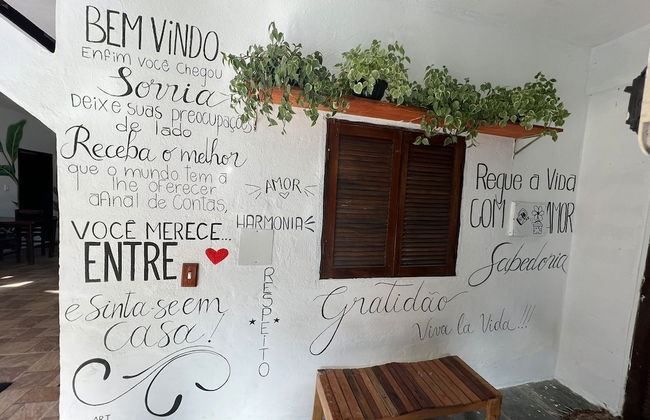 BEM VINDO
Enfim você chegou
Sorria
Deixe suas preocupações
de lado
Receba o melhor
que o mundo tem a
lhe oferecer
afinal de contas,
VOCÊ MERECE...
ENTRE
e sinta-se em
casa!
ART
AMOR
HARMONIA
RESPEITO
Gratidão
Viva la Vida!!!
Regue a Vida
COM AMOR
Sabedoria